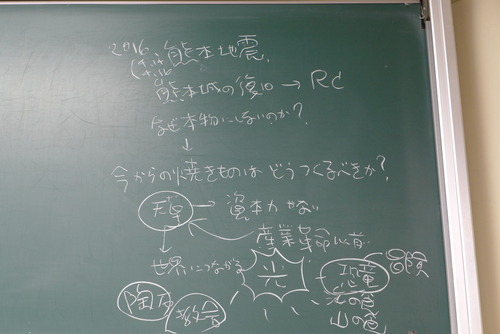 2016. 熊本地震,
4.14
4.16
熊本城の復旧 → Rc
なぜ本物にしないのか?
↓
今からの焼きものは どうつくるべきか?
天草 → 資本力がない
産業革命以前
世界につながる
光
恐竜
冒険
海の色
山の色
陶石